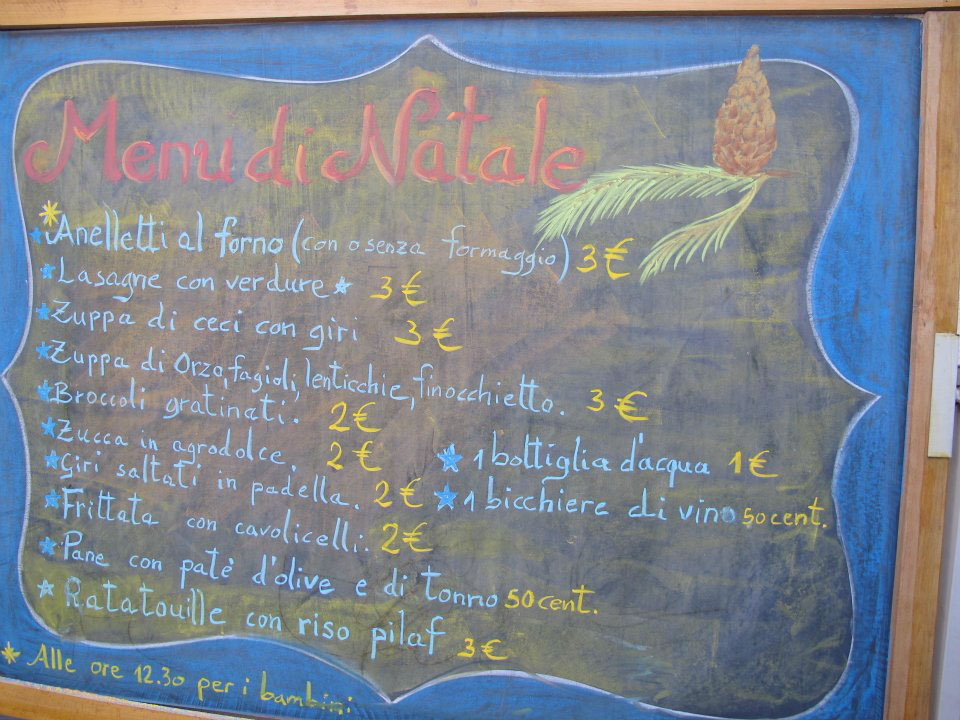 Menu di Natale
Anelletti al forno (con o senza formaggio) 3 €
Lasagne con verdure 3 €
Zuppa di ceci con giri 3 €
Zuppa di Orzo, fagioli, lenticchie, finocchietto. 3 €
Broccoli gratinati. 2 €
Zucca in agrodolce. 2 €
Giri saltati in padella. 2 €
Frittata con cavolicelli. 2 €
Pane con patè d'olive e di tonno 50 cent.
Ratatouille con riso pilaf 3 €
1 bottiglia d'acqua 1 €
1 bicchiere di vino 50 cent.
Alle ore 12.30 per i bambini